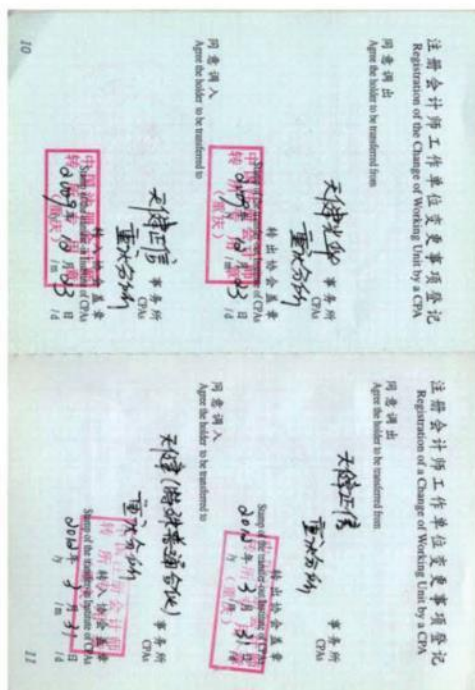 注册会计师工作单位变更事项登记
Registration of the Change of Working Unit by a CPA
同意调出
Agree the holder to be transferred from
天健光华
重庆分所
事务所
CPAs
转出协会盖章
Stamp of the transfer-out Institute of CPAs
2009年12月23日
/y /m /d
同意调入
Agree the holder to be transferred to
天健正信
重庆分所
事务所
CPAs
转入协会盖章
Stamp of the transfer-in Institute of CPAs
2009年12月23日
/y /m /d
中国注册会计师
转所专用章
(重庆)
10
注册会计师工作单位变更事项登记
Registration of a Change of Working Unit by a CPA
同意调出
Agree the holder to be transferred from
天健正信
重庆分所
事务所
CPAs
转出协会盖章
Stamp of the transfer-out Institute of CPAs
2012年3月31日
/y /m /d
同意调入
Agree the holder to be transferred to
天健(特殊普通合伙)
重庆分所
事务所
CPAs
转入协会盖章
Stamp of the transfer-in Institute of CPAs
2012年3月31日
/y /m /d
11